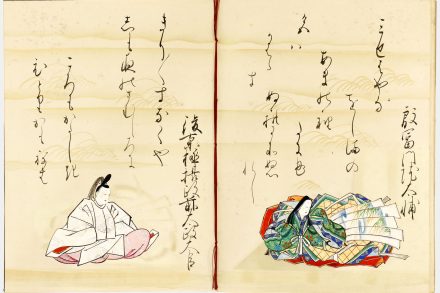 殷富門院大輔
みせはやな
をしまの
あまの袖
たにも
ぬれにそぬれ
し
色ハ
かはら
す
後京極摂政前太政大臣
きり〳〵すなくや
しも夜のさむしろに
ころもかたしき
ひとりかもねむ